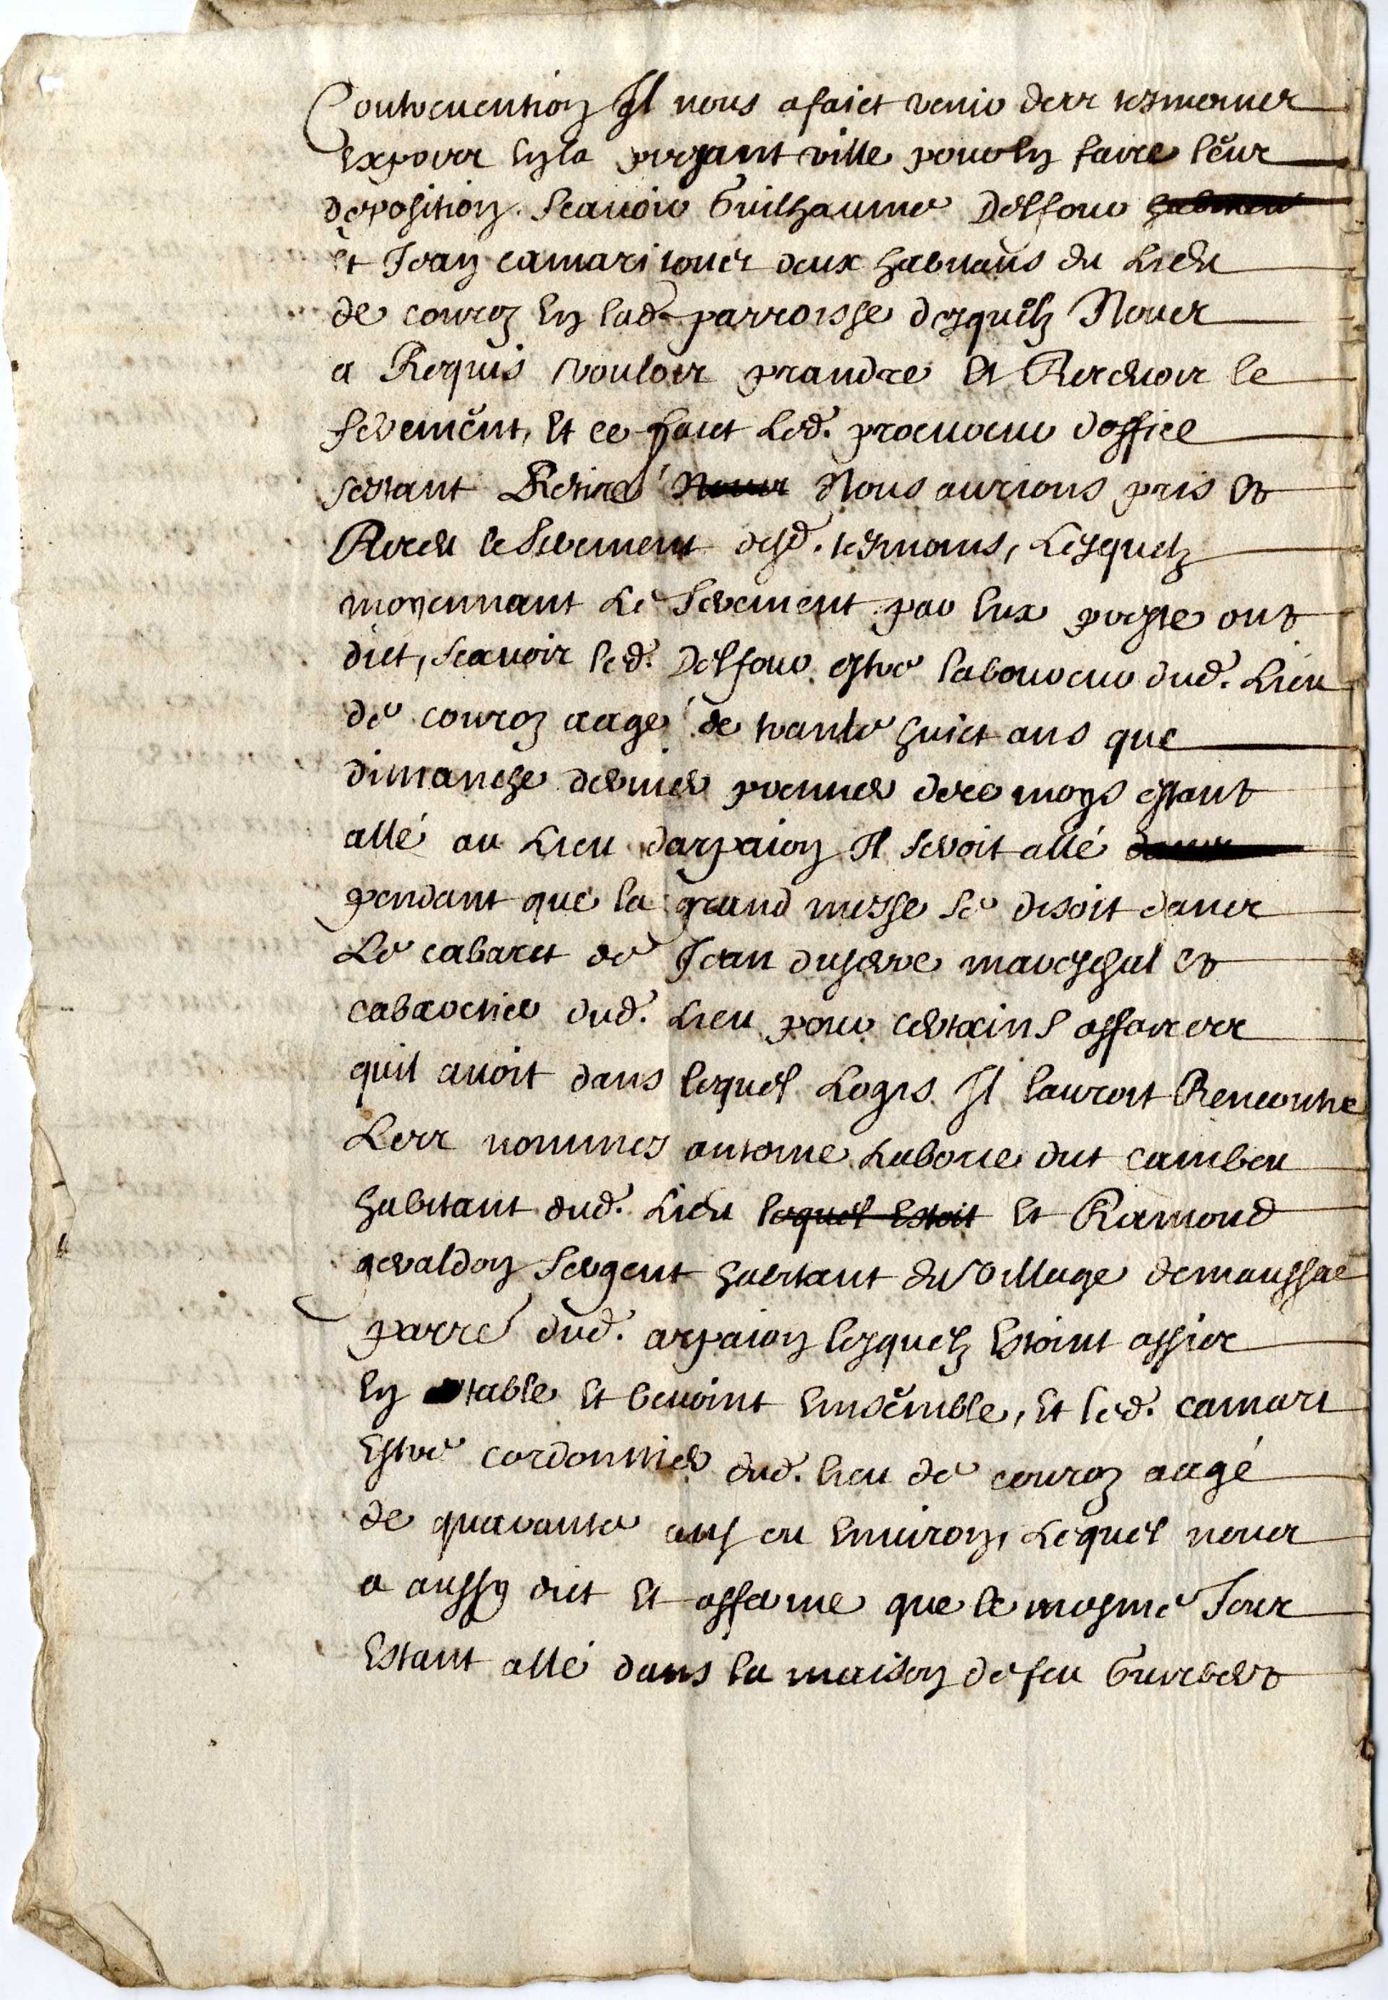 Contrevention Il nous a faict venir des tesmoins
expres en la presant ville pour en faire leur
deposition. Scavoir Guilhaume Delfour habitant
et Jean camari tous deux habitans du Lieu
de couroz en lad. parroisse desquels Nous
a Requis vouloir prandre et Recevoir le
serement, et ce faict Led. procureur doffice
sestant Retiré Nous Nous aurions pris et
Receu le serement desd. tesmoins, Lesquelz
moyennant Le serement par eux preste ont
dict, scavoir led. Delfour estre laboureur dud. Lieu
de couroz aagé de trante huict ans que
dimanche dernier premier de ce moys estant
allé au Lieu darpaion Il seroit allé dans
pendant que la grand messe se disoit dans
Le cabaret de Jean dusere mareschal et
cabaretier dud. Lieu pour certains affaires
quil avoit dans lequel Logis Il lauroit Rencontre
Les nommes antoine Laborie dit cambou
habitant dud. Lieu lequel estoit et Ramond
gevaldon sergent habitant du village de maussac
parre dud. arpaion lesquelz Estoint assies
en table et bevoint Ensemble, et led. camari
Estre cordonnier dud. lieu de couroz aagé
de quarante ans ou Environ, Lequel nous
a aussy dict et afferme que le mesme Jour
Estant allé dans la maison de feu Guirbert